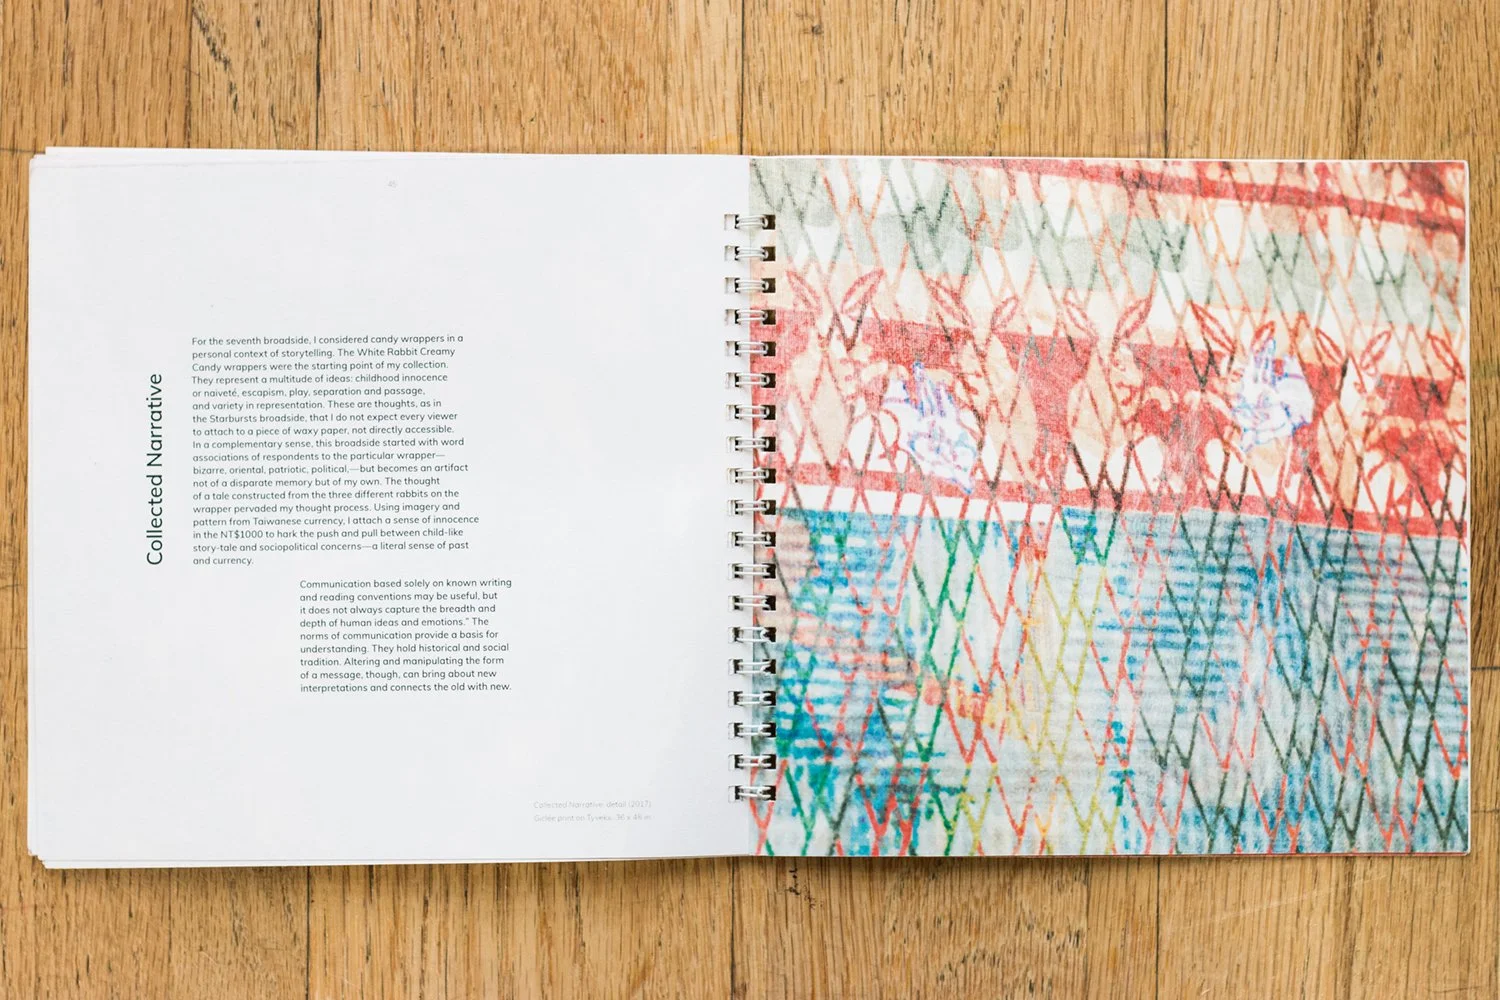 45
Collected Narrative
For the seventh broadside, I considered candy wrappers in a
personal context of storytelling. The White Rabbit Creamy
Candy wrappers were the starting point of my collection.
They represent a multitude of ideas: childhood innocence
or naiveté, escapism, play, separation and passage,
and variety in representation. These are thoughts, as in
the Starbursts broadside, that I do not expect every viewer
to attach to a piece of waxy paper, not directly accessible.
In a complementary sense, this broadside started with word
associations of respondents to the particular wrapper—
bizarre, oriental, patriotic, political,—but becomes an artifact
not of a disparate memory but of my own. The thought
of a tale constructed from the three different rabbits on the
wrapper pervaded my thought process. Using imagery and
pattern from Taiwanese currency, I attach a sense of innocence
in the NT$1000 to hark the push and pull between child-like
story-tale and sociopolitical concerns—a literal sense of past
and currency.
Communication based solely on known writing
and reading conventions may be useful, but
it does not always capture the breadth and
depth of human ideas and emotions.” The
norms of communication provide a basis for
understanding. They hold historical and social
tradition. Altering and manipulating the form
of a message, though, can bring about new
interpretations and connects the old with new.
Collected Narrative: detail (2017)
Giclée print on Tyveks. 36 x 48 in